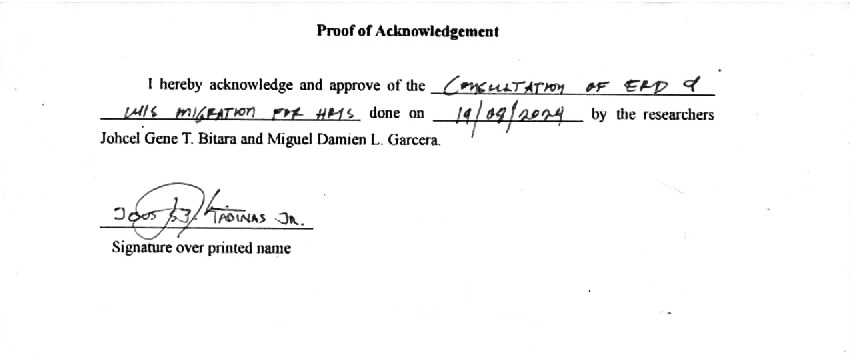 Proof of Acknowledgement
I hereby acknowledge and approve of the CONSULTATION OF ERD &
MIGRATION FOR HMS done on 19/09/2024 by the researchers
Johcel Gene T. Bitara and Miguel Damien L. Garcera.
TADINAS JR.
Signature over printed name